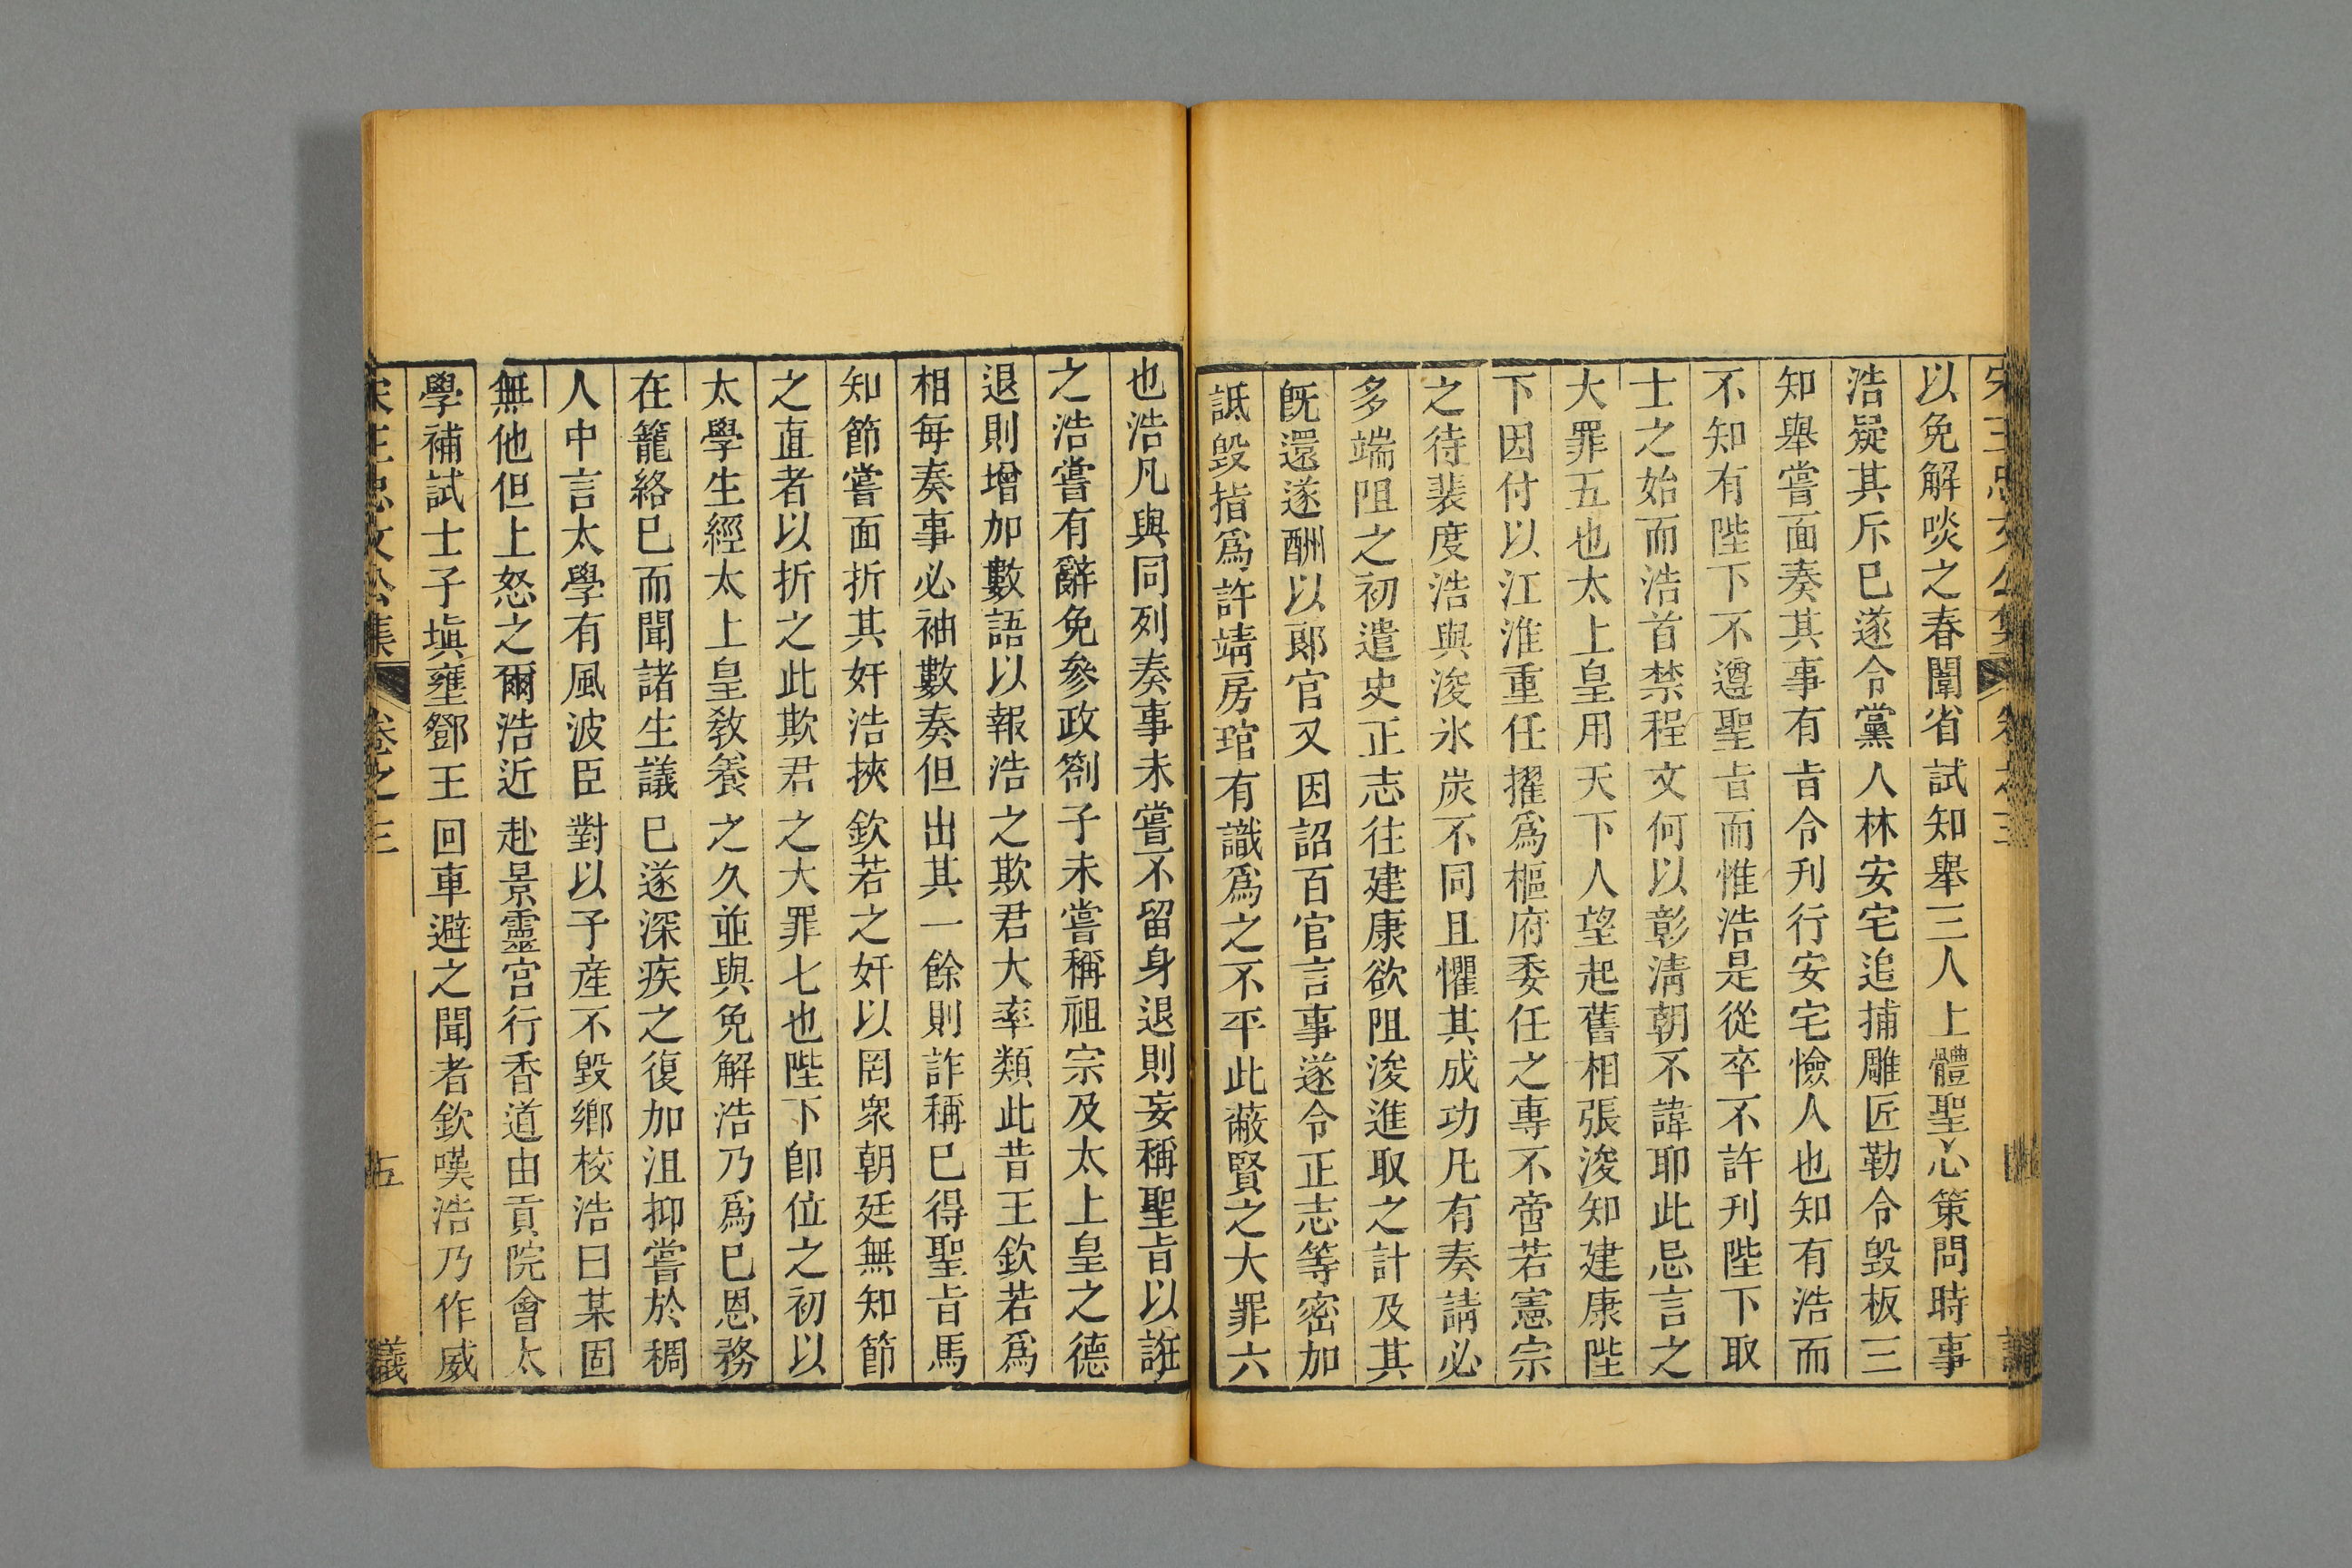 以免解啖之春闈省試知舉三人上體聖心策問時事
浩疑其斥已遂令黨人林安宅追捕雕匠勒令毀板三
知舉嘗面奏其事有㫖令刋行安宅憸人也知有浩而
不知有陛下不遵聖㫖而惟浩是從卒不許刋陛下取
士之始而浩首禁程文何以彰淸朝不諱耶此忌言之
大罪五也太上皇用天下人望起舊相張浚知建康陛
下因付以江淮重任擢爲樞府委任之專不啻若憲宗
之待裴度浩與浚氷炭不同且懼其成功凡有奏請必
多端阻之初遣史正志往建康欲阻浚進取之計及其
旣還遂酬以郞官又因詔百官言事遂令正志等密加
詆毀指爲許靖房琯有識爲之不平此蔽賢之大罪六
也浩凡與同列奏事未嘗不留身退則妄稱聖㫖以誑
之浩嘗有辭免參政劄子未嘗稱祖宗及太上皇之德
退則增加數語以報浩之欺君大率類此昔王欽若爲
相每奏事必袖數奏但出其一餘則詐稱已得聖㫖馬
知節嘗面折其奸浩挾欽若之奸以罔衆朝廷無知節
之直者以折之此欺君之大罪七也陛下卽位之初以
太學生經太上皇敎養之久並與免解浩乃爲已恩務
在籠絡已而聞諸生議已遂深疾之復加沮抑嘗於稠
人中言太學有風波臣對以子產不毀鄕校浩曰某固
無他但上怒之爾浩近赴景靈宮行香道由貢院會太
學補試士子塡壅鄧王回車避之聞者欽嘆浩乃作威
宋王忠文公集 卷之三 五 議